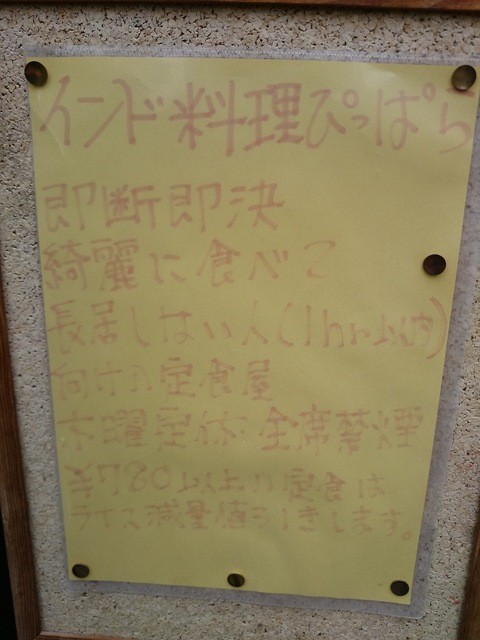 インド料理ぴっぱら
即断即決
綺麗に食べて
長居しない人(1hr以内)
向けの定食屋
木曜定休 全席禁煙
¥780以上の定食は
ライス減量値引きします。